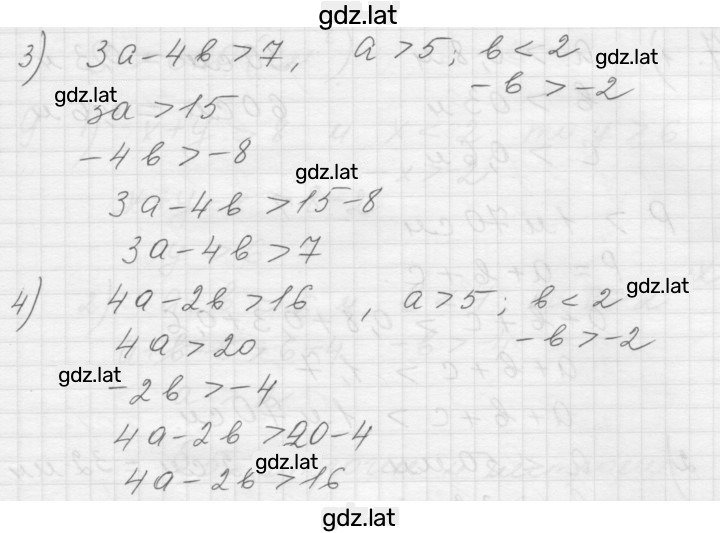 gdz.lat
3) 3a - 4b > 7, a > 5; b < 2
gdz.lat
- b > -2
gdz.lat
3a > 15
- 4b > -8
gdz.lat
3a - 4b > 15 - 8
3a - 4b > 7
4) 4a - 2b > 16, a > 5; b < 2
gdz.lat
4a > 20
- b > -2
gdz.lat
- 2b > -4
4a - 2b > 20 - 4
gdz.lat
4a - 2b > 16
gdz.lat